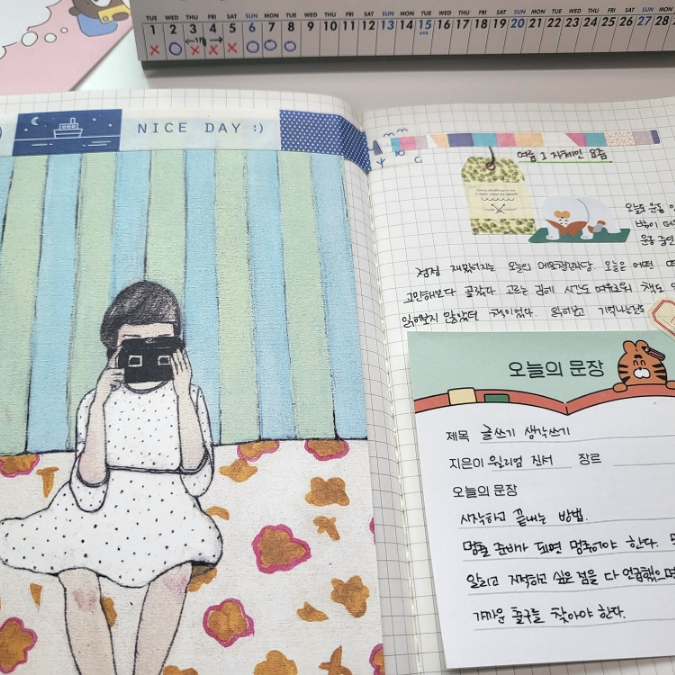 TUE WED THU FRI SAT SUN MON TUE WED THU FRI SAT SUN MON TUE WED THU FRI SAT SUN MON TUE WED THU FRI SAT SUN MON
1 2 3 4 5 6 7 8 9 10 11 12 13 14 15 16 17 18 19 20 21 22 23 24 25 26 27 28
NICE DAY :)
오늘도 운동
점점 재밌어지는 오늘의 오늘은 어떤
고민해보다 골랐다. 고르는 김에 시간도 여유로워 책도
읽어보지 않았던 책이었다. 읽어보고
오늘의 문장
제목 글쓰기 생각쓰기
지은이 윌리엄 진서 장르
오늘의 문장
시작하고 끝내는 방법.
멈출 준비가 되면 멈추어야 한다.
알리고 지적하고 싶은 점을 다 언급했으면
가까운 출구를 찾아야 한다.